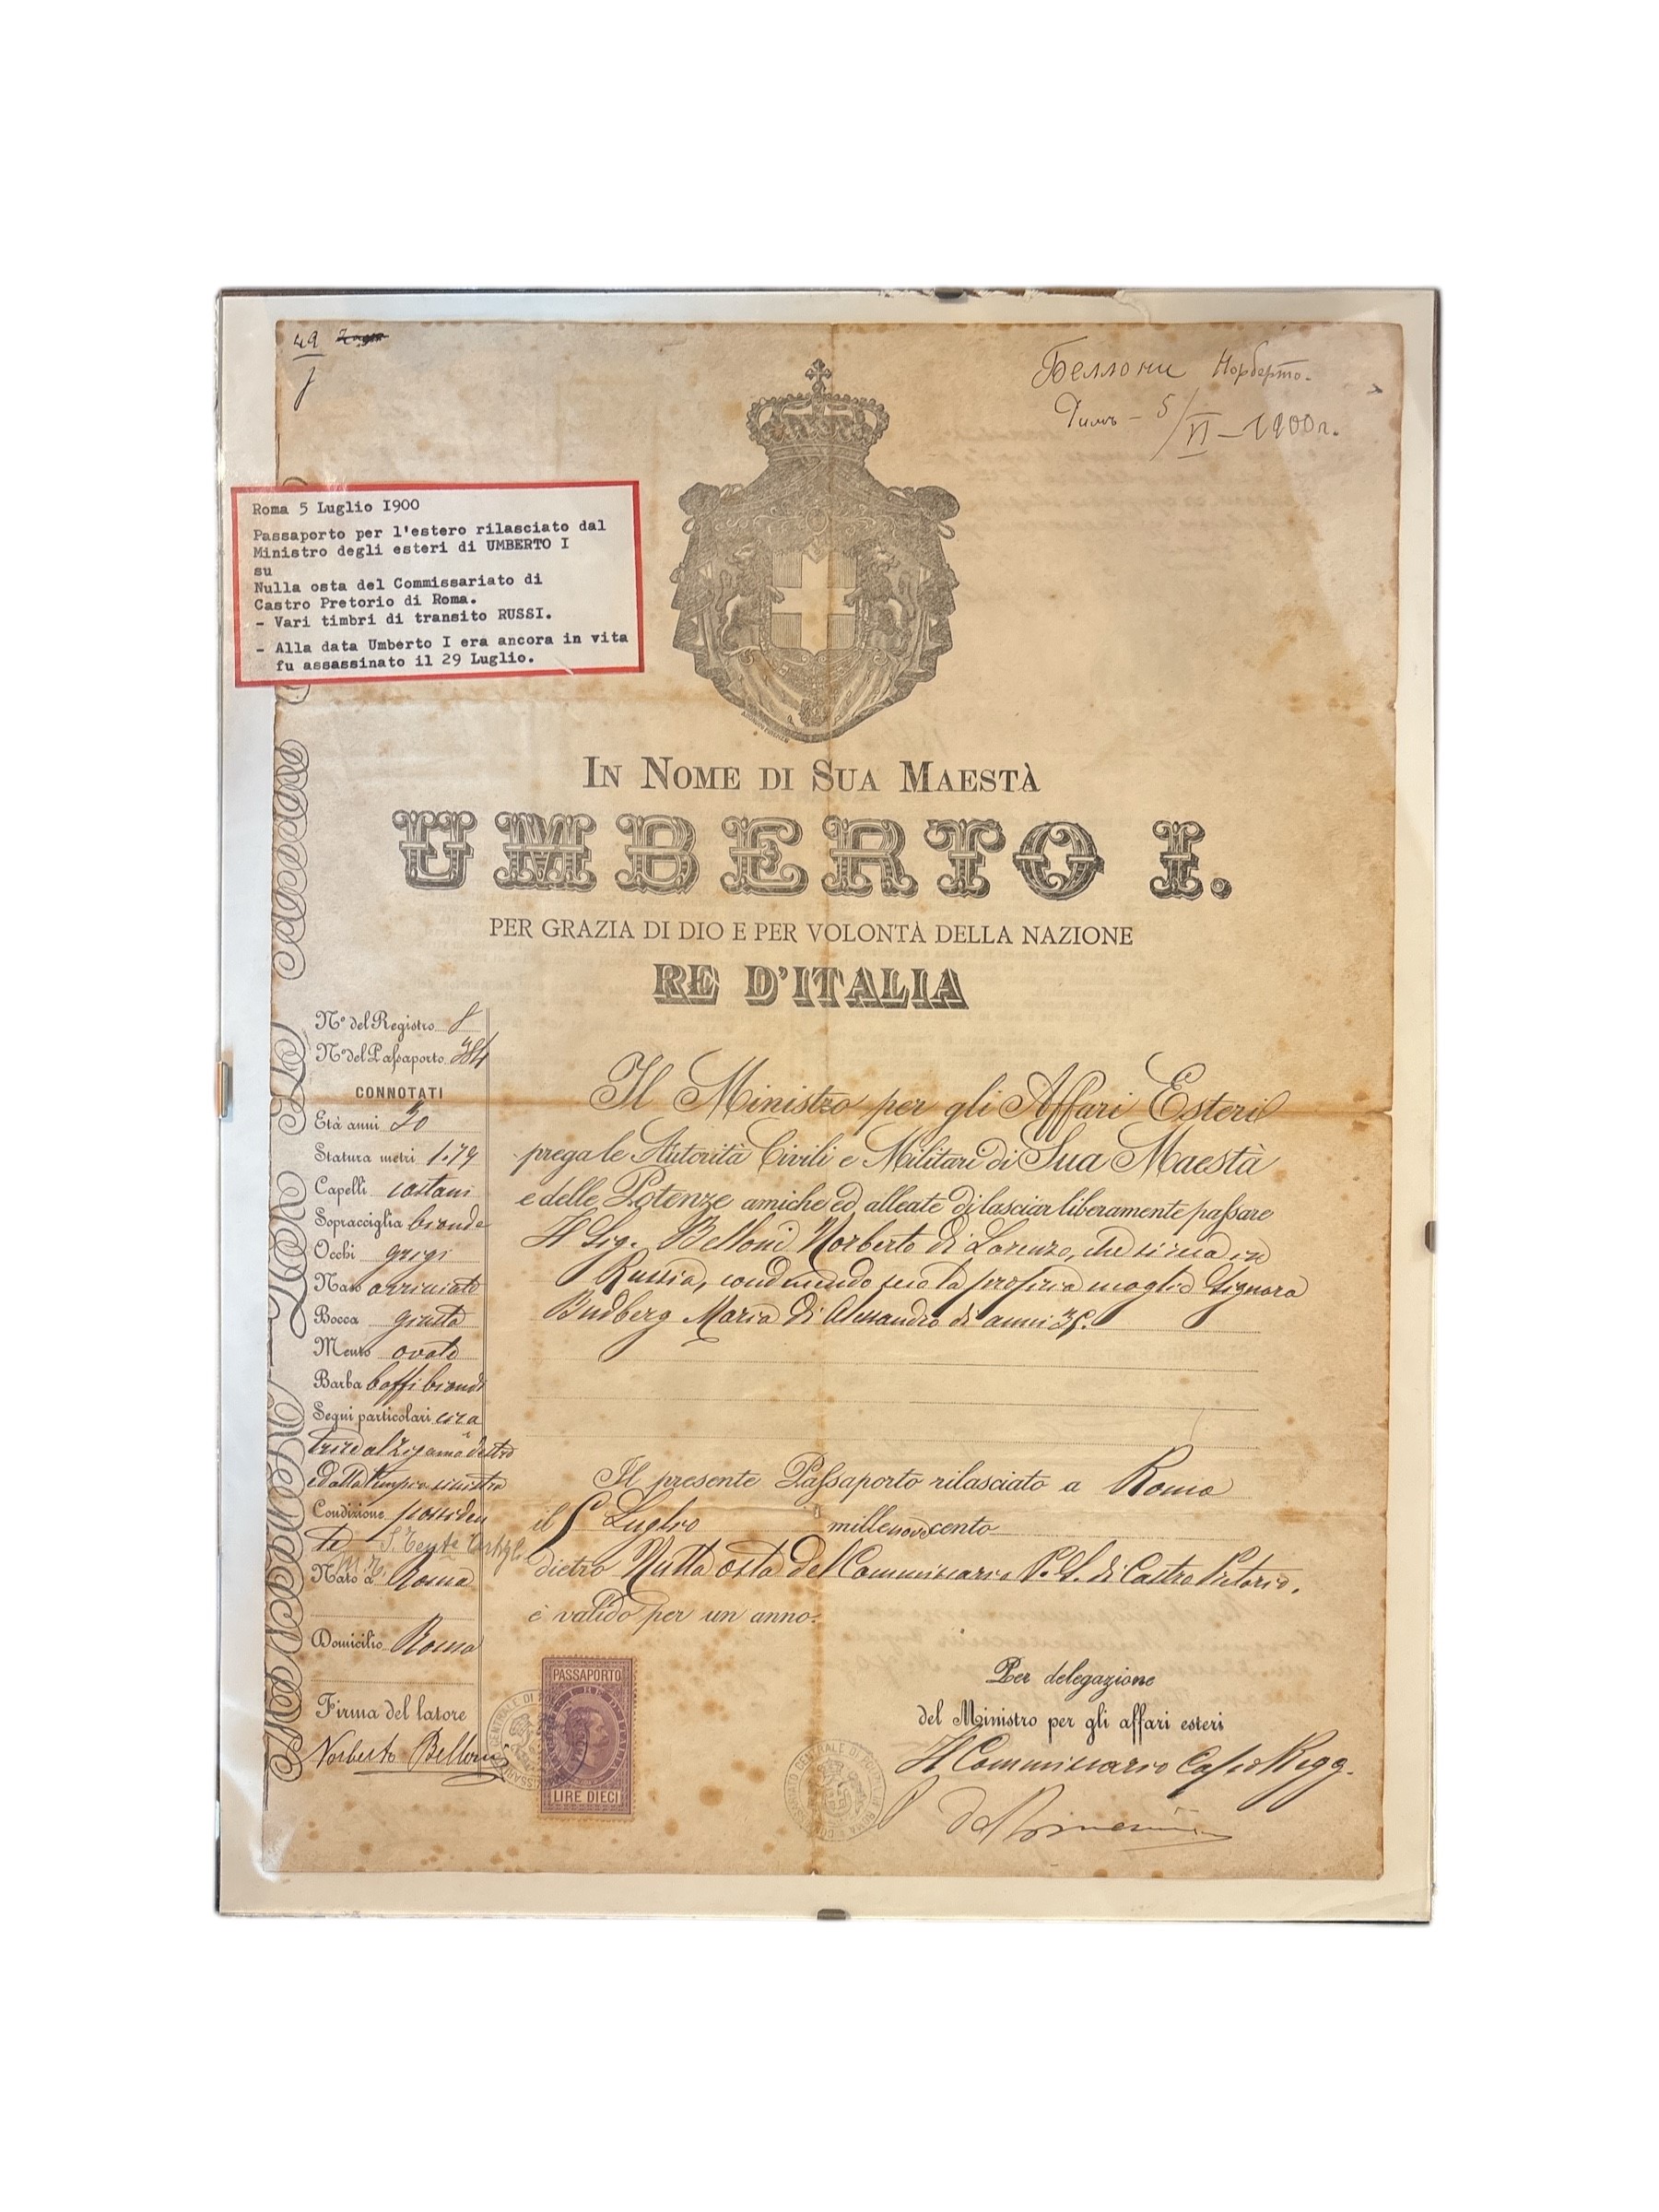 49
Беллони Норберто.
Римъ - 5/VI - 1900 г.
Roma 5 Luglio I900
Passaporto per l'estero rilasciato dal
Ministro degli esteri di UMBERTO I
su
Nulla osta del Commissariato di
Castro Pretorio di Roma.
- Vari timbri di transito RUSSI.
- Alla data Umberto I era ancora in vita
fu assassinato il 29 Luglio.
In Nome di Sua Maestà
UMBERTO I.
PER GRAZIA DI DIO E PER VOLONTÀ DELLA NAZIONE
RE D'ITALIA
No del Registro
No del Passaporto 384
CONNOTATI
Età anni 30
Statura metri 1.79
Capelli castani
Sopracciglia bionde
Occhi grigi
Naso arricciato
Bocca giusta
Mento ovale
Barba baffi biondi
Segni particolari cica
trice al zigamo destro
ed alla tempia sinistra
Condizione possiden
te
Nato a Roma
Domicilio Roma
Firma del latore
Norberto Belloni
Il Ministro per gli Affari Esteri
prega le Autorità Civili e Militari di Sua Maestà
e delle Potenze amiche ed alleate di lasciar liberamente passare
Il Sig. Belloni Norberto di Lorenzo, che si reca in
Russia, conducendo seco la propria moglie Signora
Budberg Maria di Alessandro di anni 35.
Il presente Passaporto rilasciato a Roma
il 5 Luglio millenovecento
dietro Nulla osta del Commissario P.S. di Castro Pretorio.
è valido per un anno.
PASSAPORTO
LIRE DIECI
COMMISSARIATO CENTRALE DI POLIZIA ROMA
Per delegazione
del Ministro per gli affari esteri
Il Commissario Capo Regg.